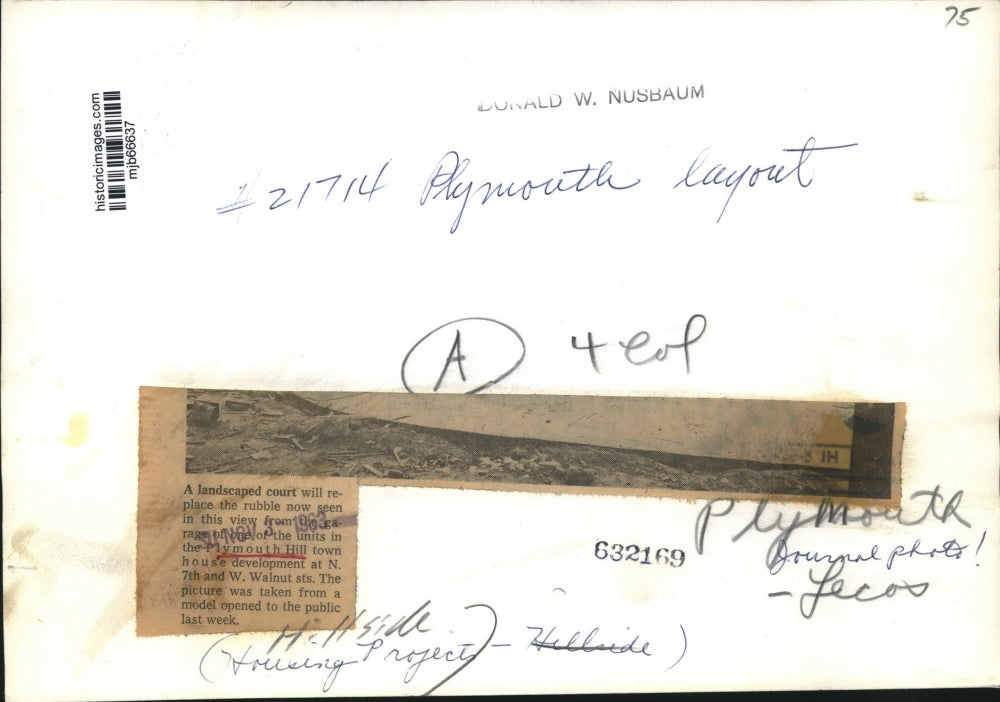 75
historicimages.com
mjb66637
DONALD W. NUSBAUM
#21714 Plymouth layout
A 4 Col
A landscaped court will re-
place the rubble now seen
in this view from the ga-
rage of one of the units in
the Plymouth Hill town
house development at N.
7th and W. Walnut sts. The
picture was taken from a
model opened to the public
last week.
NOV 3 - 1963
Plymouth
632169
Journal photo!
- Lecos
Hillside
(Housing Projects - Hillside)